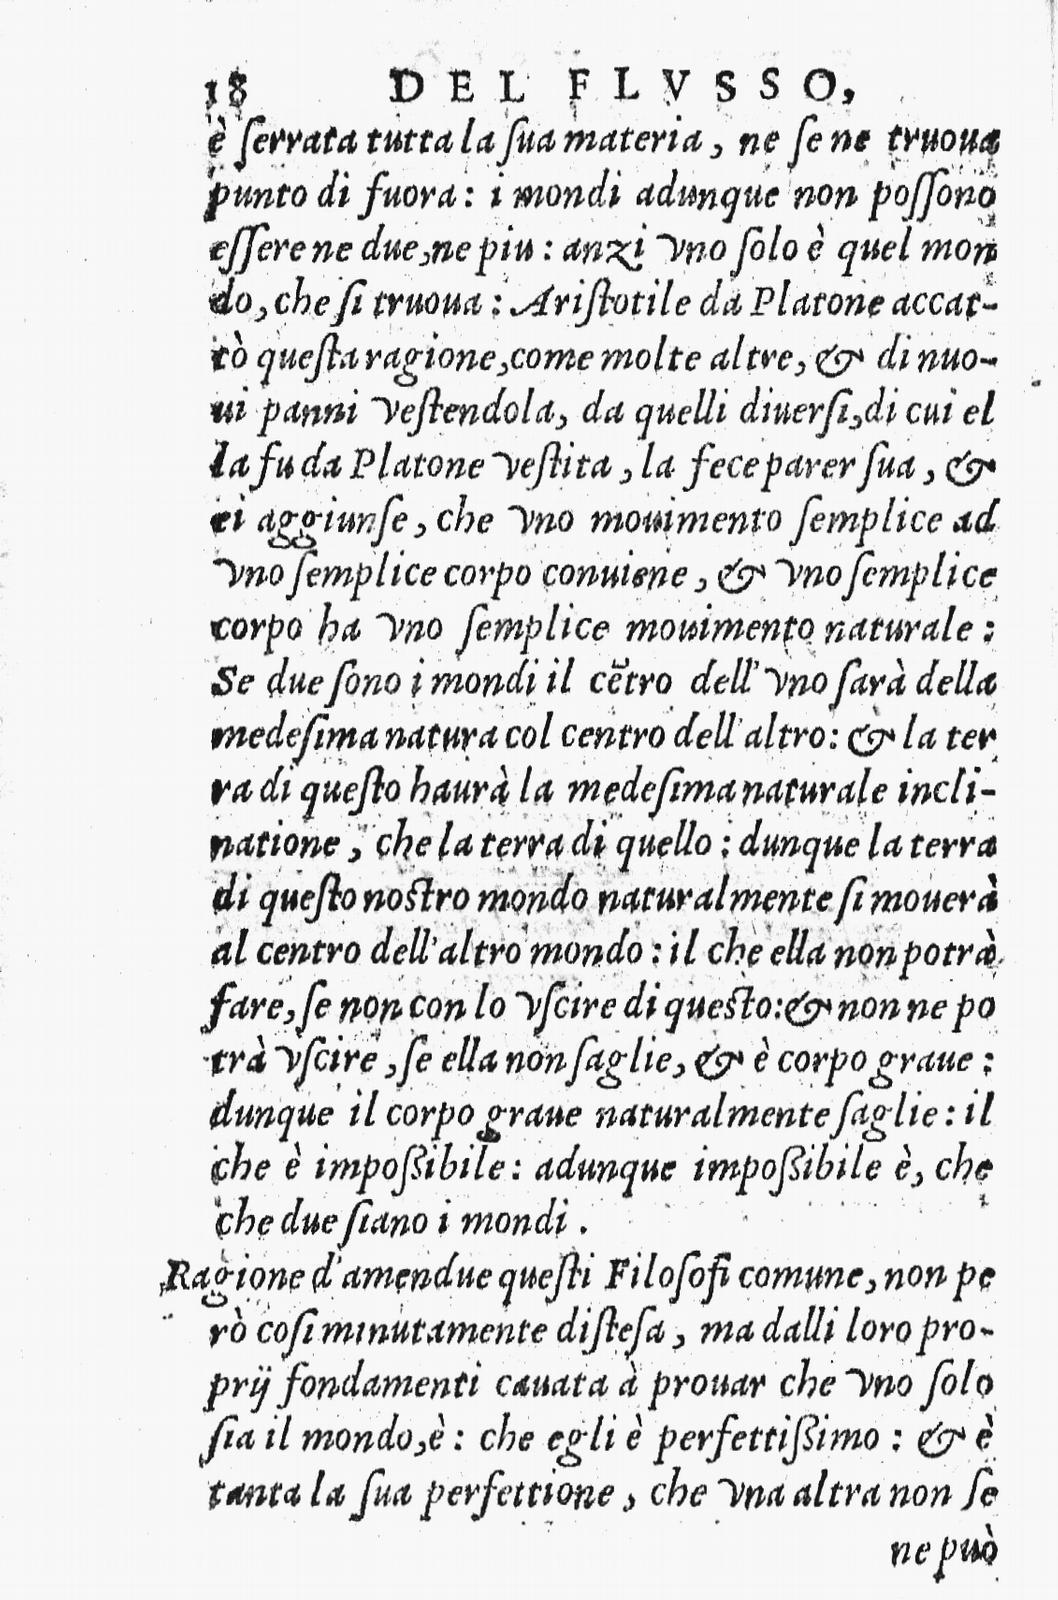 18 DEL FLVSSO,
è ſerrata tutta la ſua materia, ne ſe ne truoua
punto di fuora: i mondi adunque non poſſono
eſſere ne due, ne piu: anzi vno ſolo è quel mon
do, che ſi truoua: Ariſtotile da Platone accat-
tò queſta ragione, come molte altre, & di nuo-
ui panni veſtendola, da quelli diuerſi, di cui el
la fu da Platone veſtita, la fece parer ſua, &
ci aggiunſe, che vno mouimento ſemplice ad
vno ſemplice corpo conuiene, & vno ſemplice
corpo ha vno ſemplice mouimento naturale:
Se due ſono i mondi il cẽtro dell' vno ſarà della
medeſima natura col centro dell'altro: & la ter
ra di queſto haurà la medeſima naturale incli-
natione, che la terra di quello: dunque la terra
di queſto noſtro mondo naturalmente ſi mouerà
al centro dell'altro mondo: il che ella non potrà
fare, ſe non con lo vſcire di queſto: & non ne po
trà vſcire, ſe ella non ſaglie, & è corpo graue:
dunque il corpo graue naturalmente ſaglie: il
che è impoßibile: adunque impoßibile è, che
che due ſiano i mondi.
Ragione d'amendue queſti Filoſofi comune, non pe
rò coſi minutamente diſteſa, ma dalli loro pro-
prij fondamenti cauata à prouar che vno ſolo
ſia il mondo, è: che egli è perfettißimo: & è
tanta la ſua perfettione, che vna altra non ſe
ne può